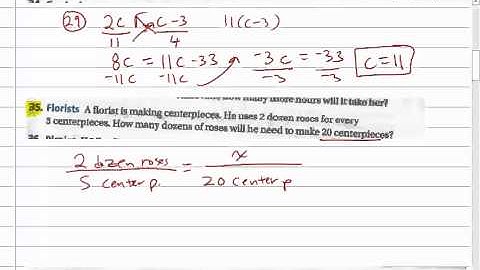 29 2c/11 = c-3/4 11(c-3)
8c = 11c-33 -3c/-3 = -33/-3 c=11
-11c -11c
how many more hours will it take her?
35. Florists A florist is making centerpieces. He uses 2 dozen roses for every
5 centerpieces. How many dozens of roses will he need to make 20 centerpieces?
2 dozen roses/5 centerp. = x/20 centerp